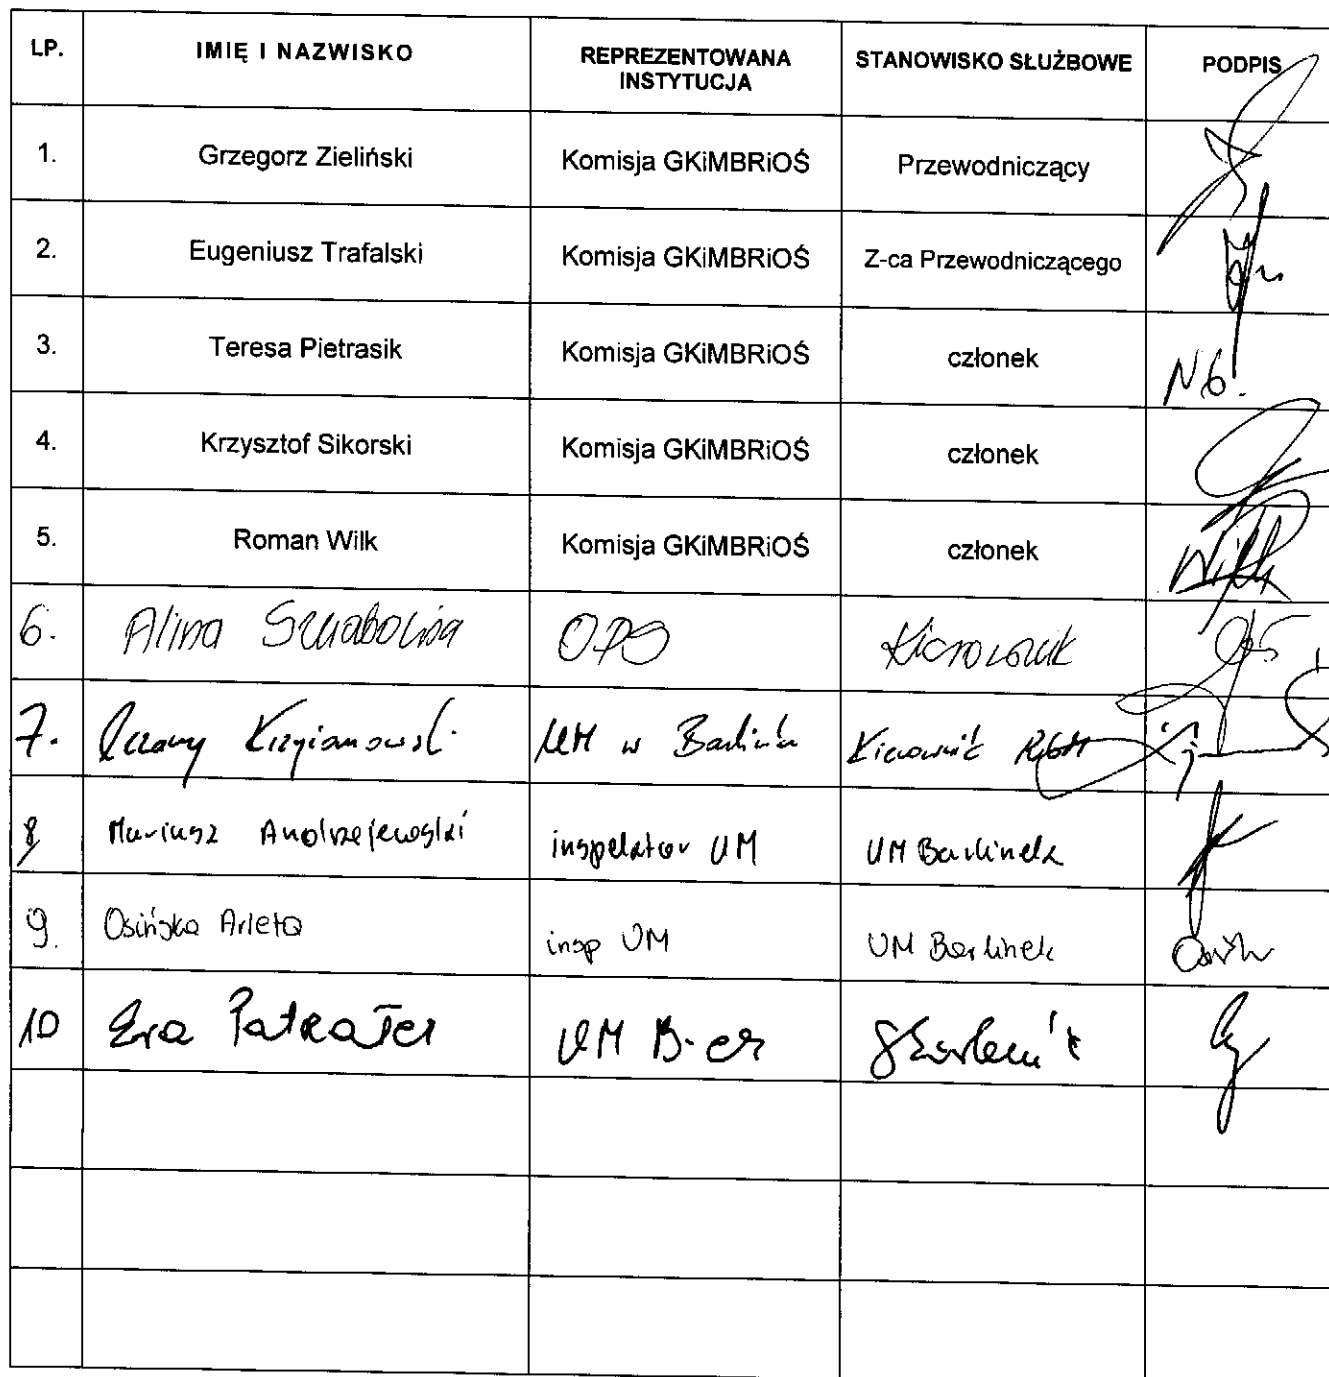 LP. IMIĘ I NAZWISKO REPREZENTOWANA INSTYTUCJA STANOWISKO SŁUŻBOWE PODPIS
1. Grzegorz Zieliński Komisja GKiMBRiOŚ Przewodniczący
2. Eugeniusz Trafalski Komisja GKiMBRiOŚ Z-ca Przewodniczącego
3. Teresa Pietrasik Komisja GKiMBRiOŚ członek N6.
4. Krzysztof Sikorski Komisja GKiMBRiOŚ członek
5. Roman Wilk Komisja GKiMBRiOŚ członek Wilk
6. Alina OPS Kierownik
7. UM w Barlinku Kierownik
8, Mariusz Andrzejewski inspektor UM UM Barlinek
9. Osińska Arleta insp UM UM Barlinek
10 Ewa UM B-ek